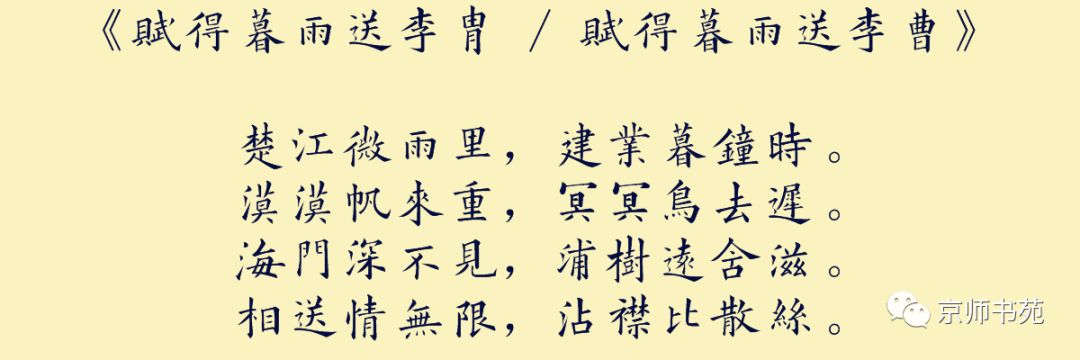 《賦得暮雨送李胄 / 賦得暮雨送李曹》
楚江微雨里，建業暮鐘時。
漠漠帆來重，冥冥鳥去遲。
海門深不見，浦樹遠含滋。
相送情無限，沾襟比散絲。
京师书苑